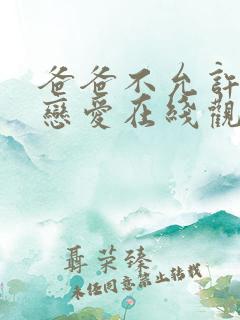 爸爸不允許
戀愛在綫觀
聶荣臻
未经同意禁止转载